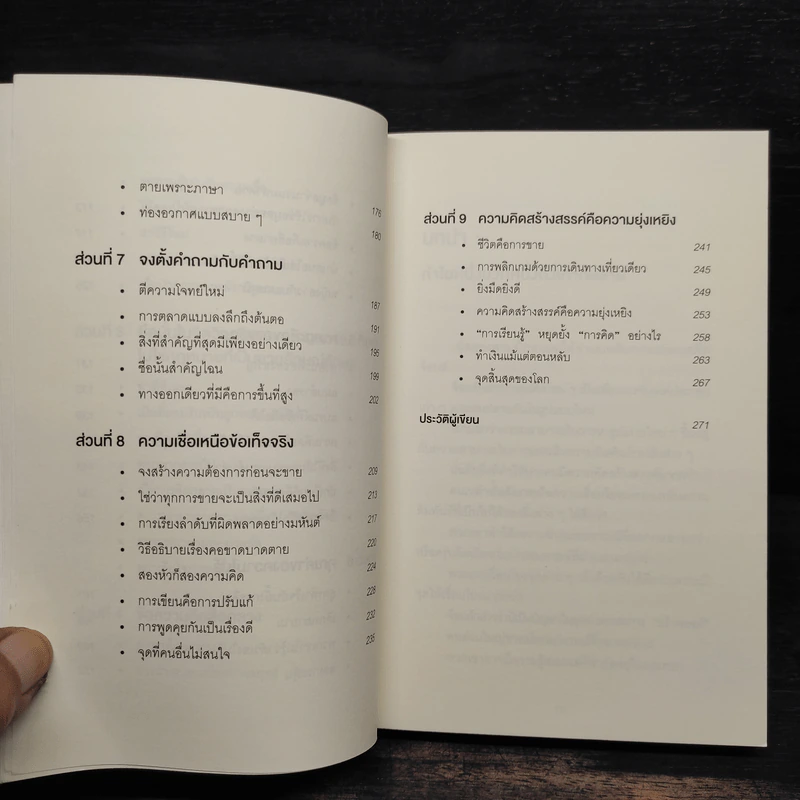 • ตายเพราะภาษา 176
• ท่องอวกาศแบบสบาย ๆ 180
ส่วนที่ 7 จงตั้งคำถามกับคำถาม
• ตีความโจทย์ใหม่ 187
• การตลาดแบบลงลึกถึงต้นตอ 191
• สิ่งที่สำคัญที่สุดมีเพียงอย่างเดียว 195
• ชื่อนั้นสำคัญไฉน 199
• ทางออกเดียวที่มีคือการขึ้นที่สูง 202
ส่วนที่ 8 ความเชื่อเหนือข้อเท็จจริง
• จงสร้างความต้องการก่อนจะขาย 209
• ใช่ว่าทุกการขายจะเป็นสิ่งที่ดีเสมอไป 213
• การเรียงลำดับที่ผิดพลาดอย่างมหันต์ 217
• วิธีอธิบายเรื่องคอขาดบาดตาย 220
• สองหัวก็สองความคิด 224
• การเขียนคือการปรับแก้ 228
• การพูดคุยกันเป็นเรื่องดี 232
• จุดที่คนอื่นไม่สนใจ 235
ส่วนที่ 9 ความคิดสร้างสรรค์คือความยุ่งเหยิง
• ชีวิตคือการขาย 241
• การพลิกเกมด้วยการเดินทางเที่ยวเดียว 245
• ยิ่งมืดยิ่งดี 249
• ความคิดสร้างสรรค์คือความยุ่งเหยิง 253
• “การเรียนรู้” หยุดยั้ง “การคิด” อย่างไร 258
• ทำเงินแม้แต่ตอนหลับ 263
• จุดสิ้นสุดของโลก 267
ประวัติผู้เขียน 271